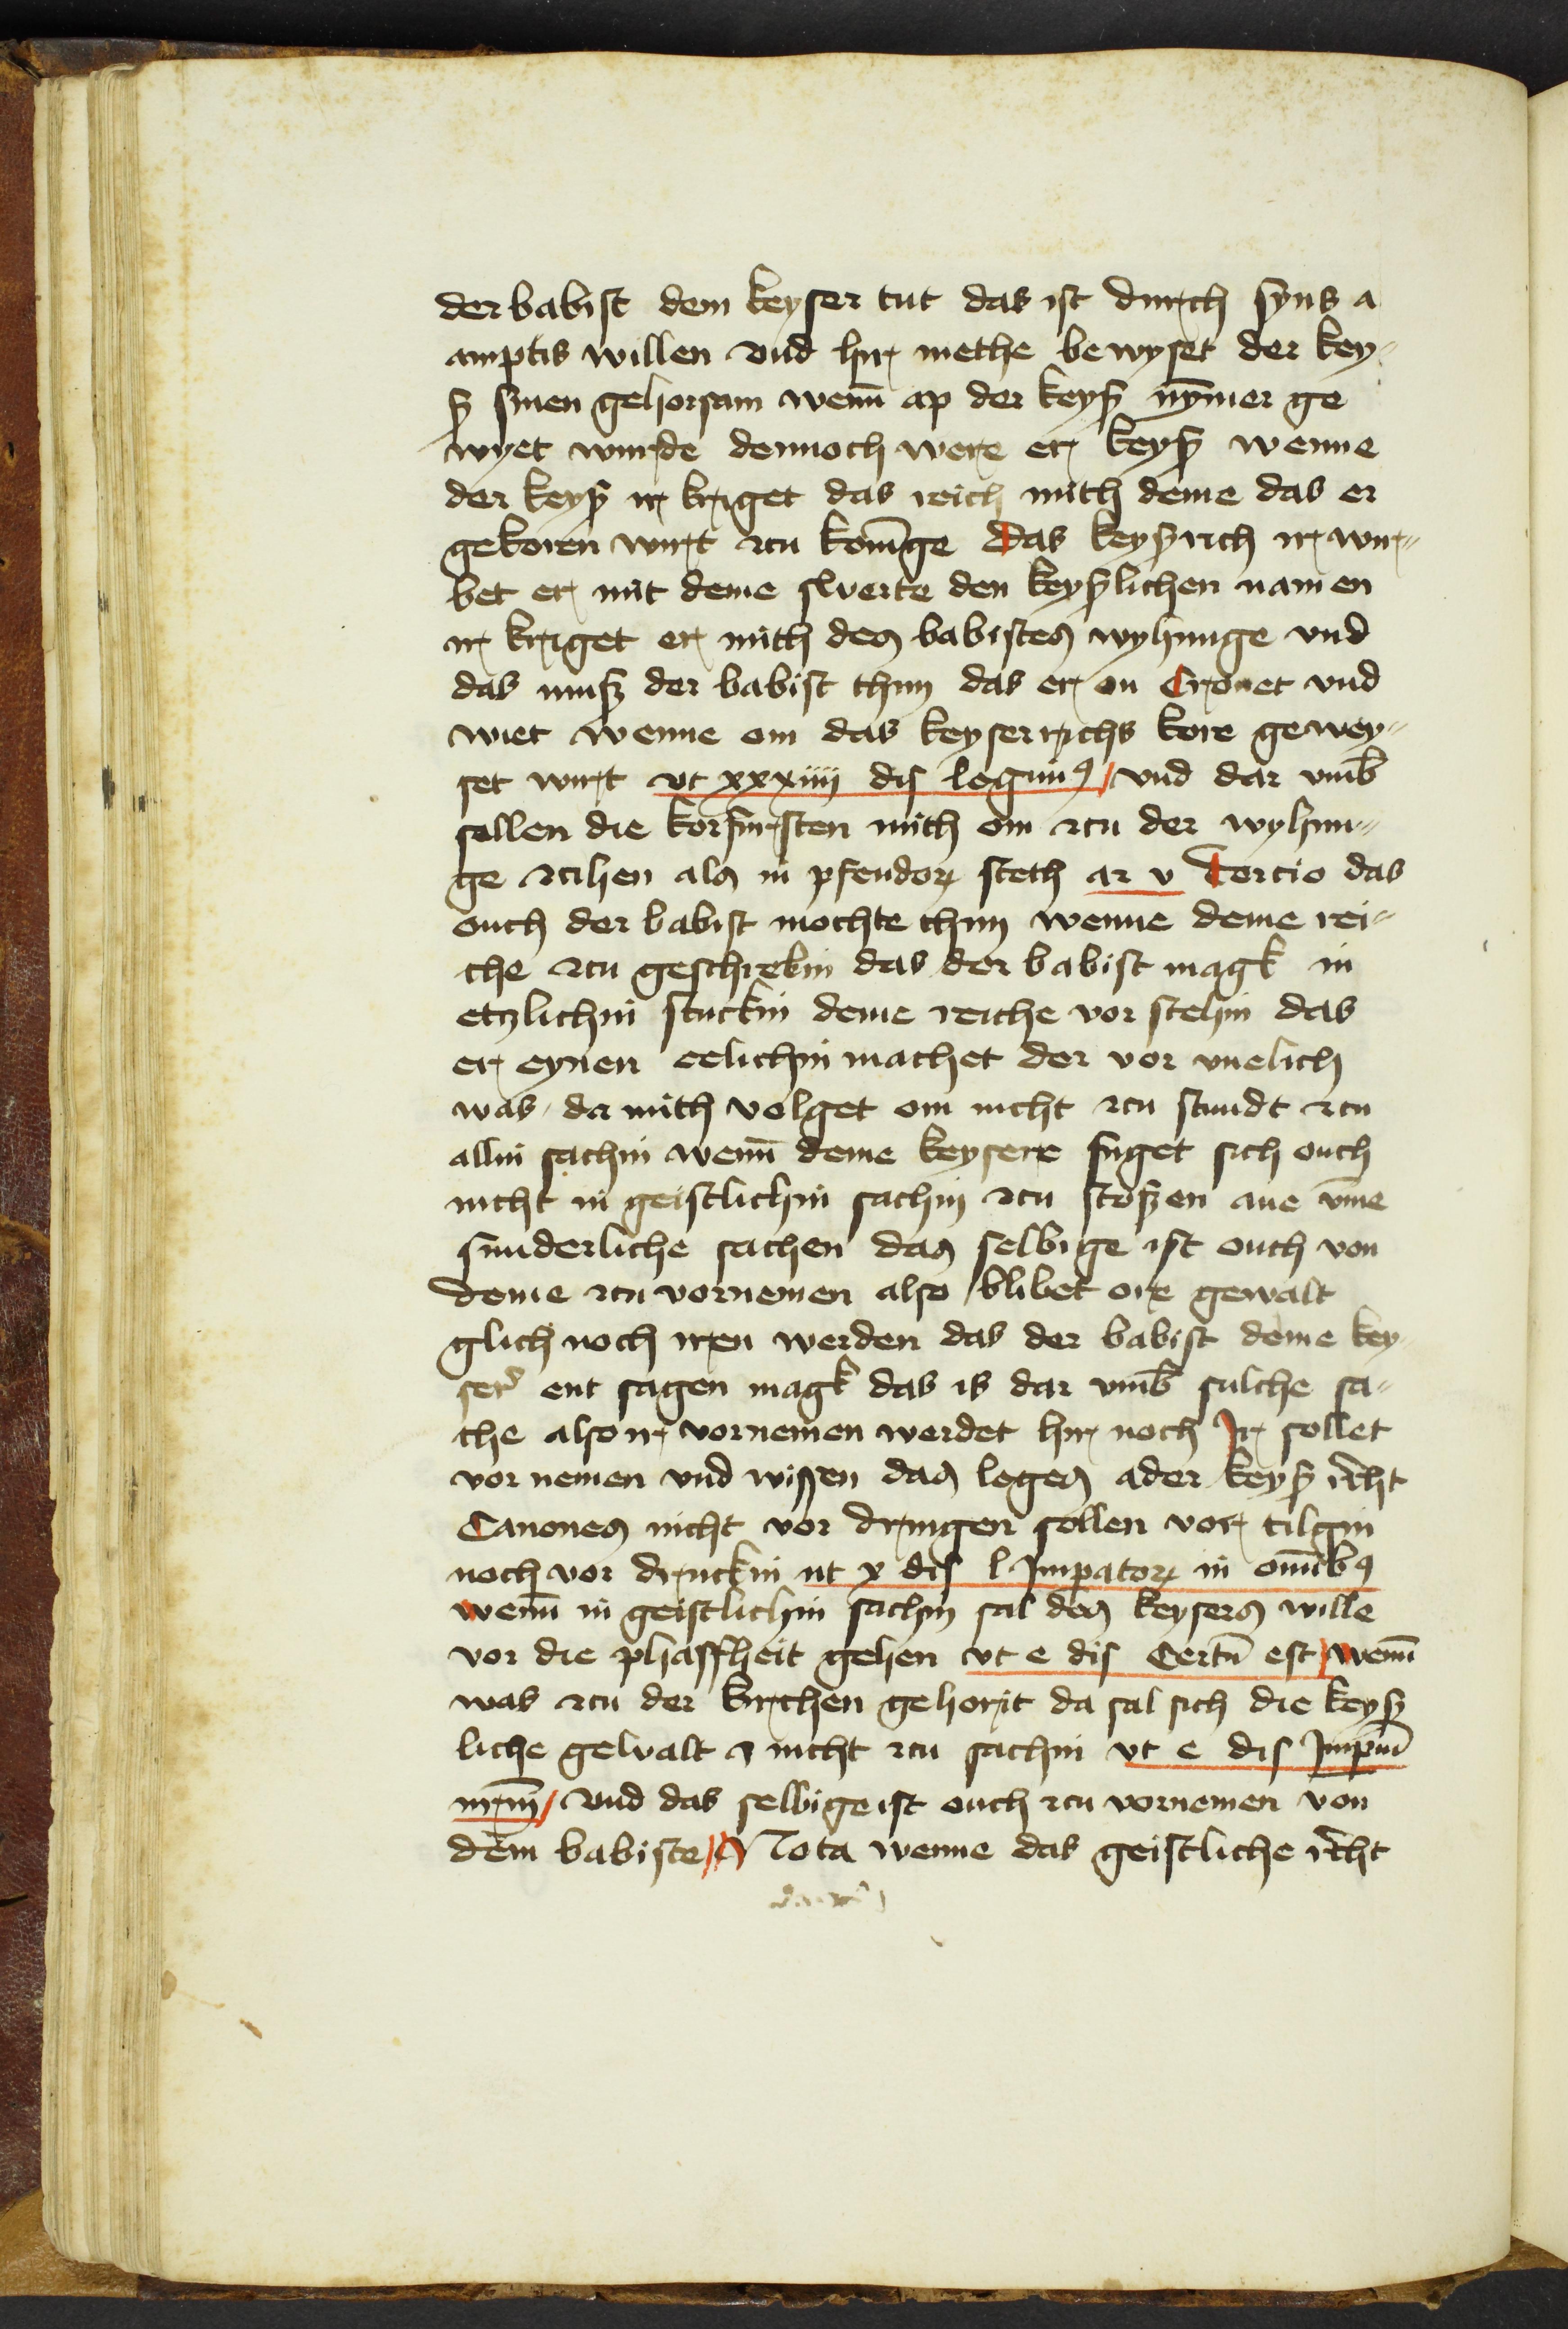 der babist dem keyser tut das ist durch syns a
amptis willen und hir methe bewyset der key-
ß sinen gehorsam wenn̄ ap der keyß nȳmer ge
wyet wurde dennoch were er keyß wenne
der keyß ir kriget das reich mith deme das er
gekoren wirt zcu konīge das keyßrich ir wir-
bet er mit deme swerte den keyßlichen namen
ir kriget er mith des babistes wyhunge vnd
das musz der babist thun das er on Cronet vnd
wiet wenne om das keyserrichs kore gewey-
set wirt vt xxxiiii dis legim9 / vnd dar vmb̄
sollen die korfursten mith om zcu der wyhun-
ge zcihen als in pfendor steth ar v Tercio das
ouch der babist mochte thun wenne deme rei-
che zcu geschrebin das der babist magk in
etzlichin stuckin deme reiche vor stehin das
er eynen eelichin machet der vor vnelich
was / da mith volget om nicht zcu stundt zcu
allin sachin wenn̄ deme keysere fuget sich ouch
nicht in geistlichin sachin zcu stoszen ane vm̄e
sunderliche sachen das selbige ist ouch von
deme zcu vornemen also blibet ore gewalt
glich noch iren werden das der babist deme key
ser' ent sagen magk das is dar vmb̄ sulche sa-
che also ir vornemen werdet hir noch Ir sollet
vor nemen vnd wissen das leges ader keyß rēcht
Canones nicht vor dringen sollen vor tilgin
noch vor druckin ut x dis l Impator in om̄ib9
wenn̄ in geistlichin sachin sal des keysers wille
vor die phaffheit gehen vt e dis Certū est / wenn̄
was zcu der kirchen gehorit da sal sich die keyß
liche gewalt nicht zcu sachin vt e dis Impiū
/ vnd das selbige ist ouch zcu vornemen von
dem babiste / Nota wenne das geistliche rēcht